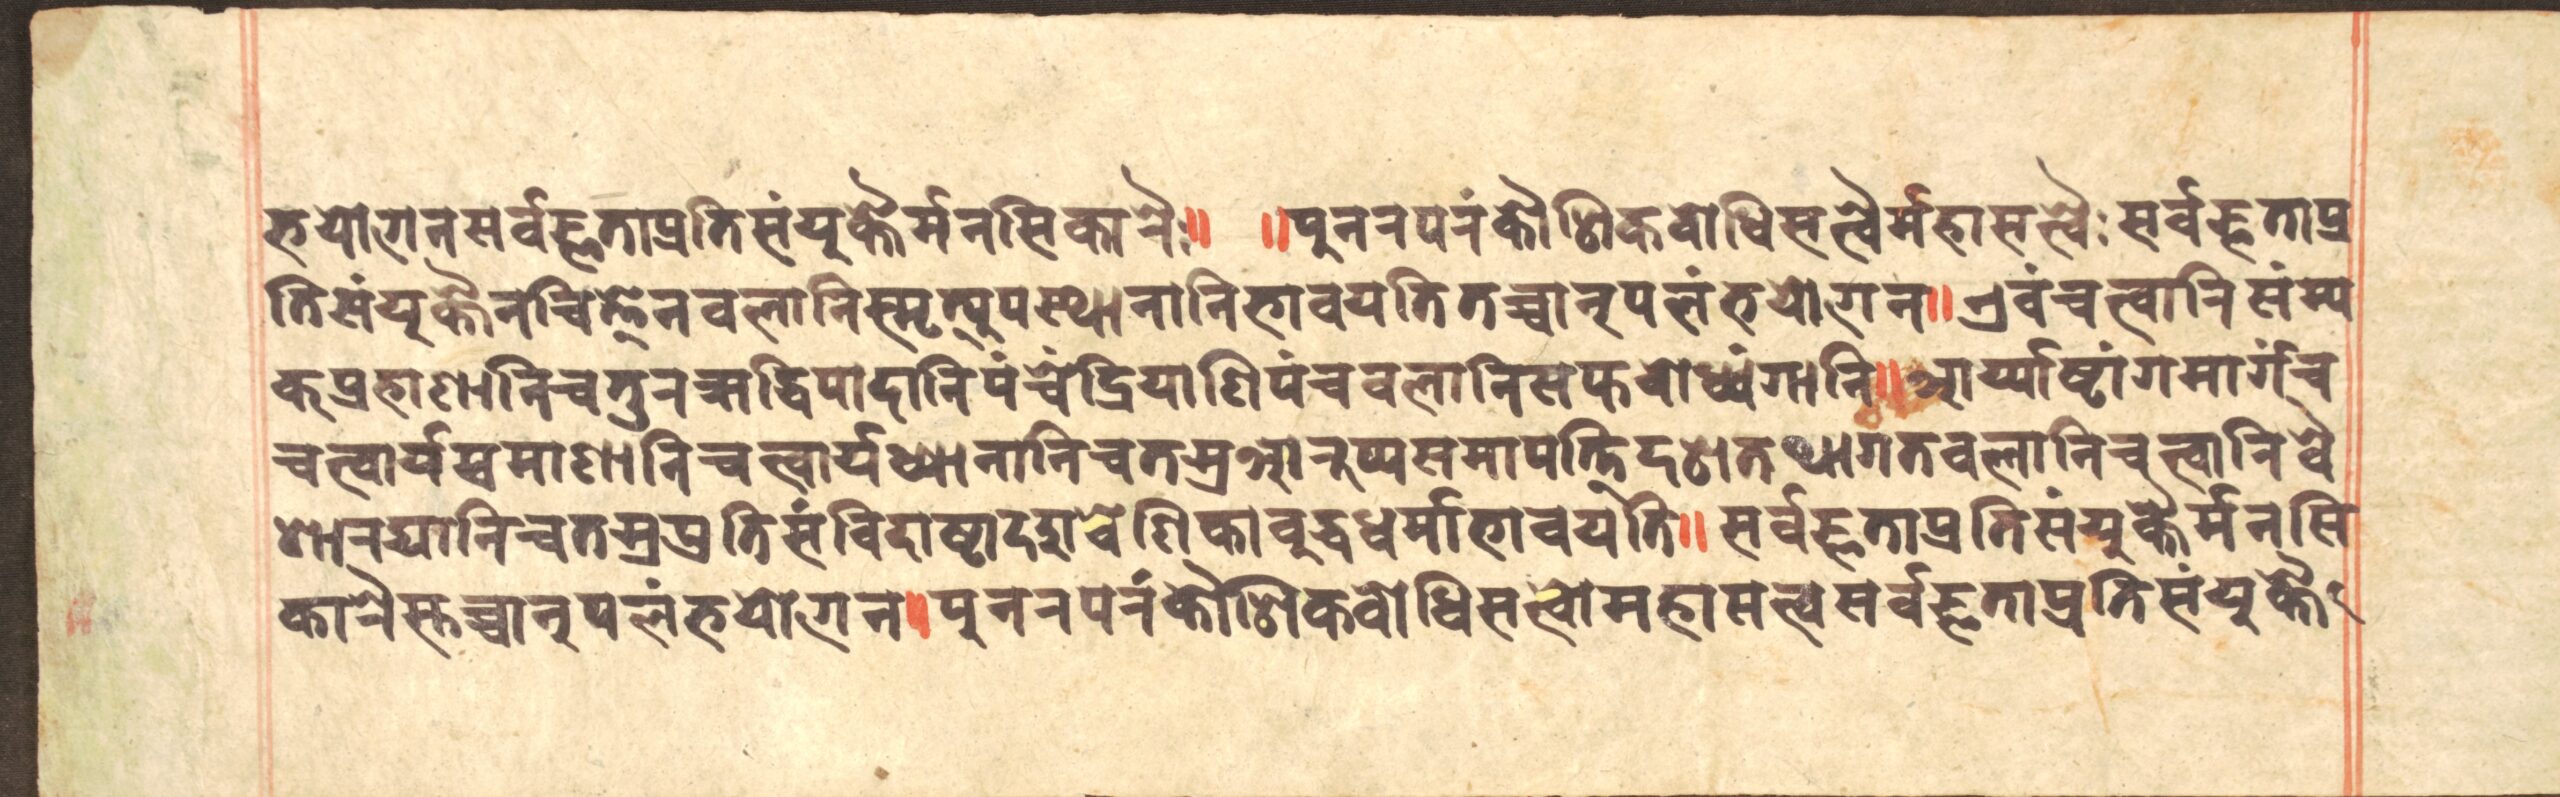 भयोगेनसर्वज्ञताप्रतिसंयुक्तैर्मनसिकारैः॥ ॥पुनरपरंकौशिकबोधिसत्वैर्महासत्वैःसर्वज्ञताप्र
तिसंयुक्तैरचित्तेनवलानिस्मृत्युपस्थानानिभावयतितच्चानुपलंभयोगेन॥एवंचत्वारिसंम्य
क्प्रहाणानिचतुरऋद्धिपादानिपंचेंद्रियाणिपंचवलानिसप्तबोध्यंगानि॥आर्य्याष्टांगमार्गंच
चत्वार्यप्रमाणानिचत्वार्यध्यानानिचतस्रआरुप्यसमापत्तिदशतथागतवलानिचत्वारिवै
शारद्यानिचतस्रप्रतिसंविदाष्टादशावेणिकाबुद्धधर्माभावयति॥सर्वज्ञताप्रतिसंयुक्तैर्मनसि
कारैस्तच्चानुपलंभयोगेन॥पुनरपरंकौशिकबोधिसत्वोमहासत्वसर्वज्ञताप्रतिसंयुक्तैः